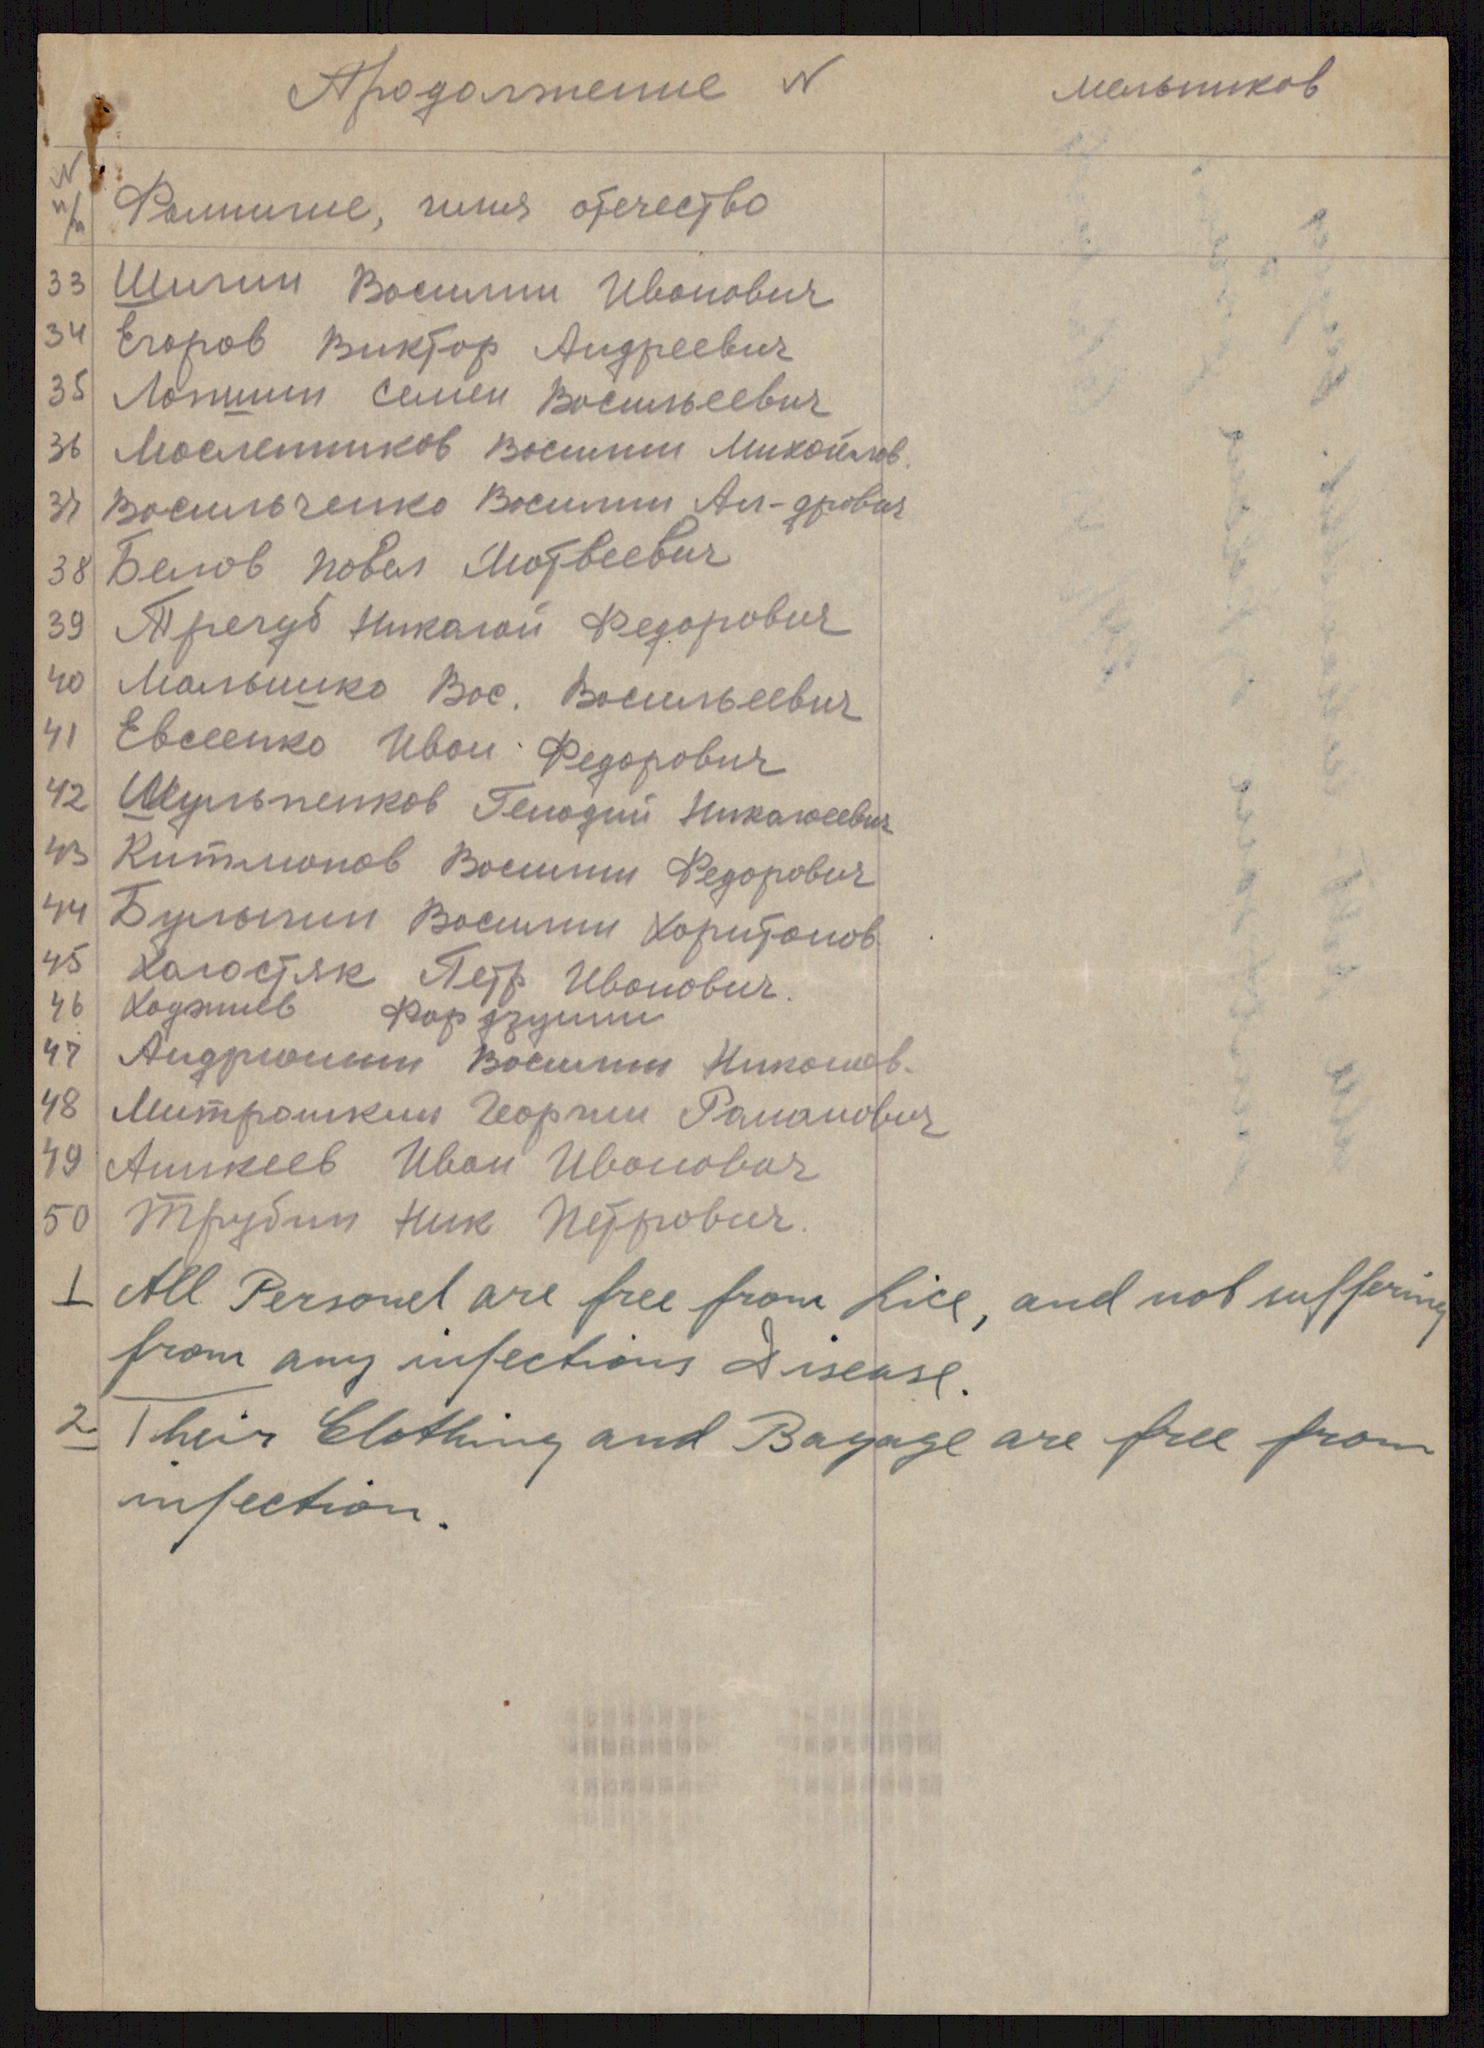 Продолжение N мельников
N п/п Фамилие, имя отечество
33 Шигин Василии Иванович
34 Егоров Виктор Андреевич
35 Лапшин Семен Васильевич
36 Масленников Василии Михайлов.
37 Васильченко Василии Ал-дрович
38 Белов Павел Матвеевич
39 Трегуб Николай Федорович
40 Малышко Вас. Васильевич
41 Евсеенко Иван Федорович
42 Шульпенков Генадий Николаевич
43 Китманов Василии Федорович
44 Булыгин Василии Харитонов
45 Халостяк Петр Иванович.
46 Хаджиев
47 Андрюшин Василии Николаев.
48 Митрошкин Георгии Раманович
49 Аникеев Иван Иванович
50 Трубин Ник Петрович.
1 All Personel are free from Lice, and not suffering
from any infections Disease.
2 Their Clothing and Bagage are free from
infection.